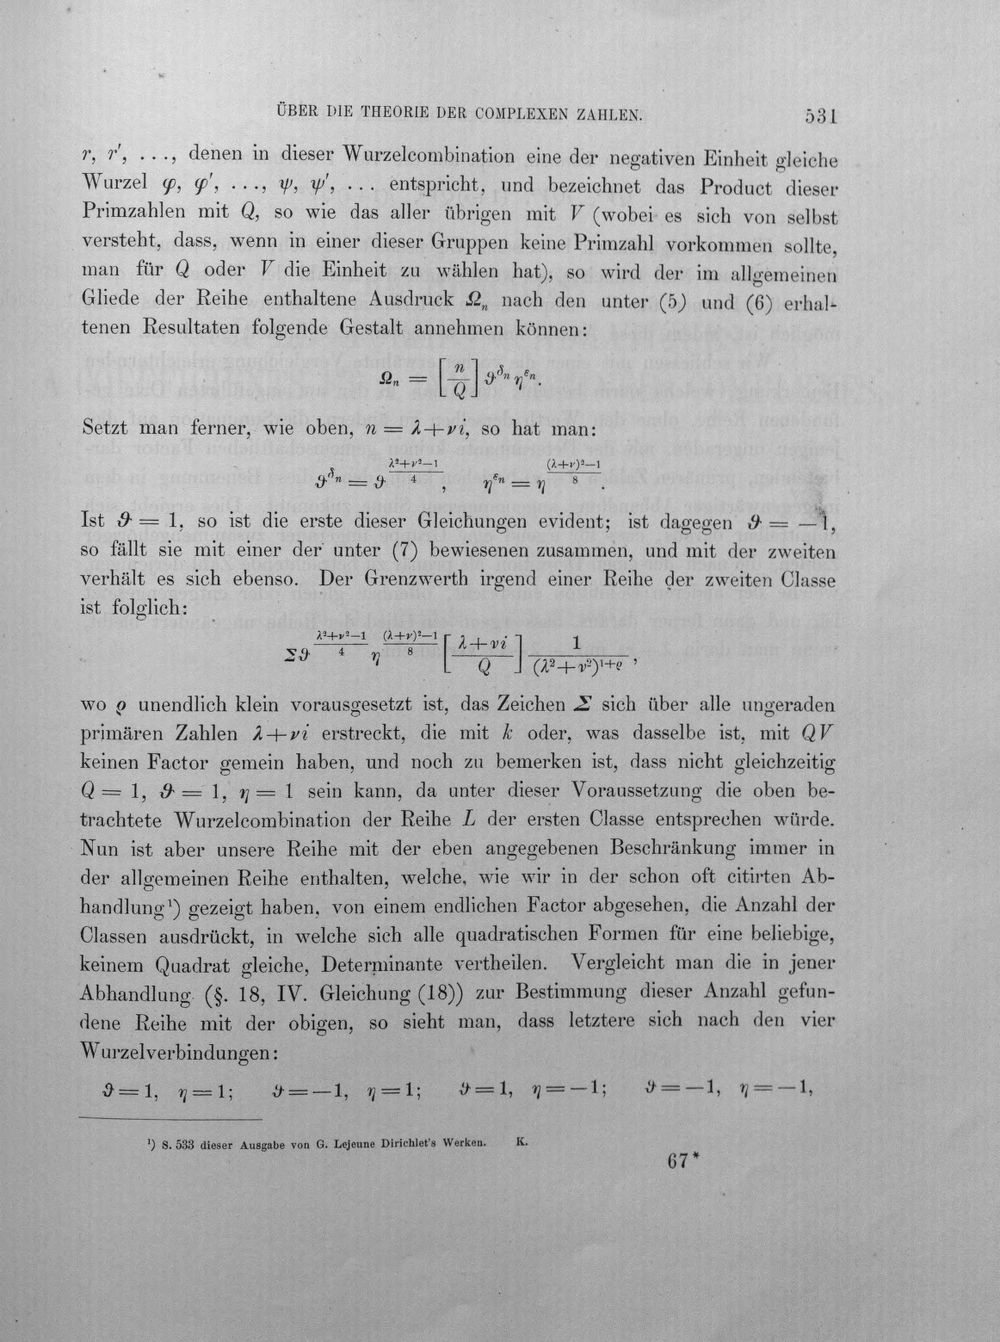 ÜBER DIE THEORIE DER COMPLEXEN ZAHLEN. 531
r, r', . . ., denen in dieser Wurzelcombination eine der negativen Einheit gleiche
Wurzel φ, φ', . . ., ψ, ψ', . . . entspricht, und bezeichnet das Product dieser
Primzahlen mit Q, so wie das aller übrigen mit V (wobei es sich von selbst
versteht, dass, wenn in einer dieser Gruppen keine Primzahl vorkommen sollte,
man für Q oder V die Einheit zu wählen hat), so wird der im allgemeinen
Gliede der Reihe enthaltene Ausdruck Ω_n nach den unter (5) und (6) erhal-
tenen Resultaten folgende Gestalt annehmen können:
Ω_n = [n/Q] ϑ^{δ_n} η^{ε_n}.
Setzt man ferner, wie oben, n = λ+νi, so hat man:
ϑ^{δ_n} = ϑ^{(λ²+ν²—1)/4}, η^{ε_n} = η^{((λ+ν)²—1)/8}.
Ist ϑ = 1, so ist die erste dieser Gleichungen evident; ist dagegen ϑ = —1,
so fällt sie mit einer der unter (7) bewiesenen zusammen, und mit der zweiten
verhält es sich ebenso. Der Grenzwerth irgend einer Reihe der zweiten Classe
ist folglich:
Σϑ^{(λ²+ν²—1)/4} η^{((λ+ν)²—1)/8} [(λ+νi)/Q] 1/(λ²+ν²)^{1+ϱ},
wo ϱ unendlich klein vorausgesetzt ist, das Zeichen Σ sich über alle ungeraden
primären Zahlen λ+νi erstreckt, die mit k oder, was dasselbe ist, mit QV
keinen Factor gemein haben, und noch zu bemerken ist, dass nicht gleichzeitig
Q = 1, ϑ = 1, η = 1 sein kann, da unter dieser Voraussetzung die oben be-
trachtete Wurzelcombination der Reihe L der ersten Classe entsprechen würde.
Nun ist aber unsere Reihe mit der eben angegebenen Beschränkung immer in
der allgemeinen Reihe enthalten, welche, wie wir in der schon oft citirten Ab-
handlung¹) gezeigt haben, von einem endlichen Factor abgesehen, die Anzahl der
Classen ausdrückt, in welche sich alle quadratischen Formen für eine beliebige,
keinem Quadrat gleiche, Determinante vertheilen. Vergleicht man die in jener
Abhandlung (§. 18, IV. Gleichung (18)) zur Bestimmung dieser Anzahl gefun-
dene Reihe mit der obigen, so sieht man, dass letztere sich nach den vier
Wurzelverbindungen:
ϑ = 1, η = 1; ϑ = —1, η = 1; ϑ = 1, η = —1; ϑ = —1, η = —1,
¹) S. 533 dieser Ausgabe von G. Lejeune Dirichlet's Werken. K.
67*